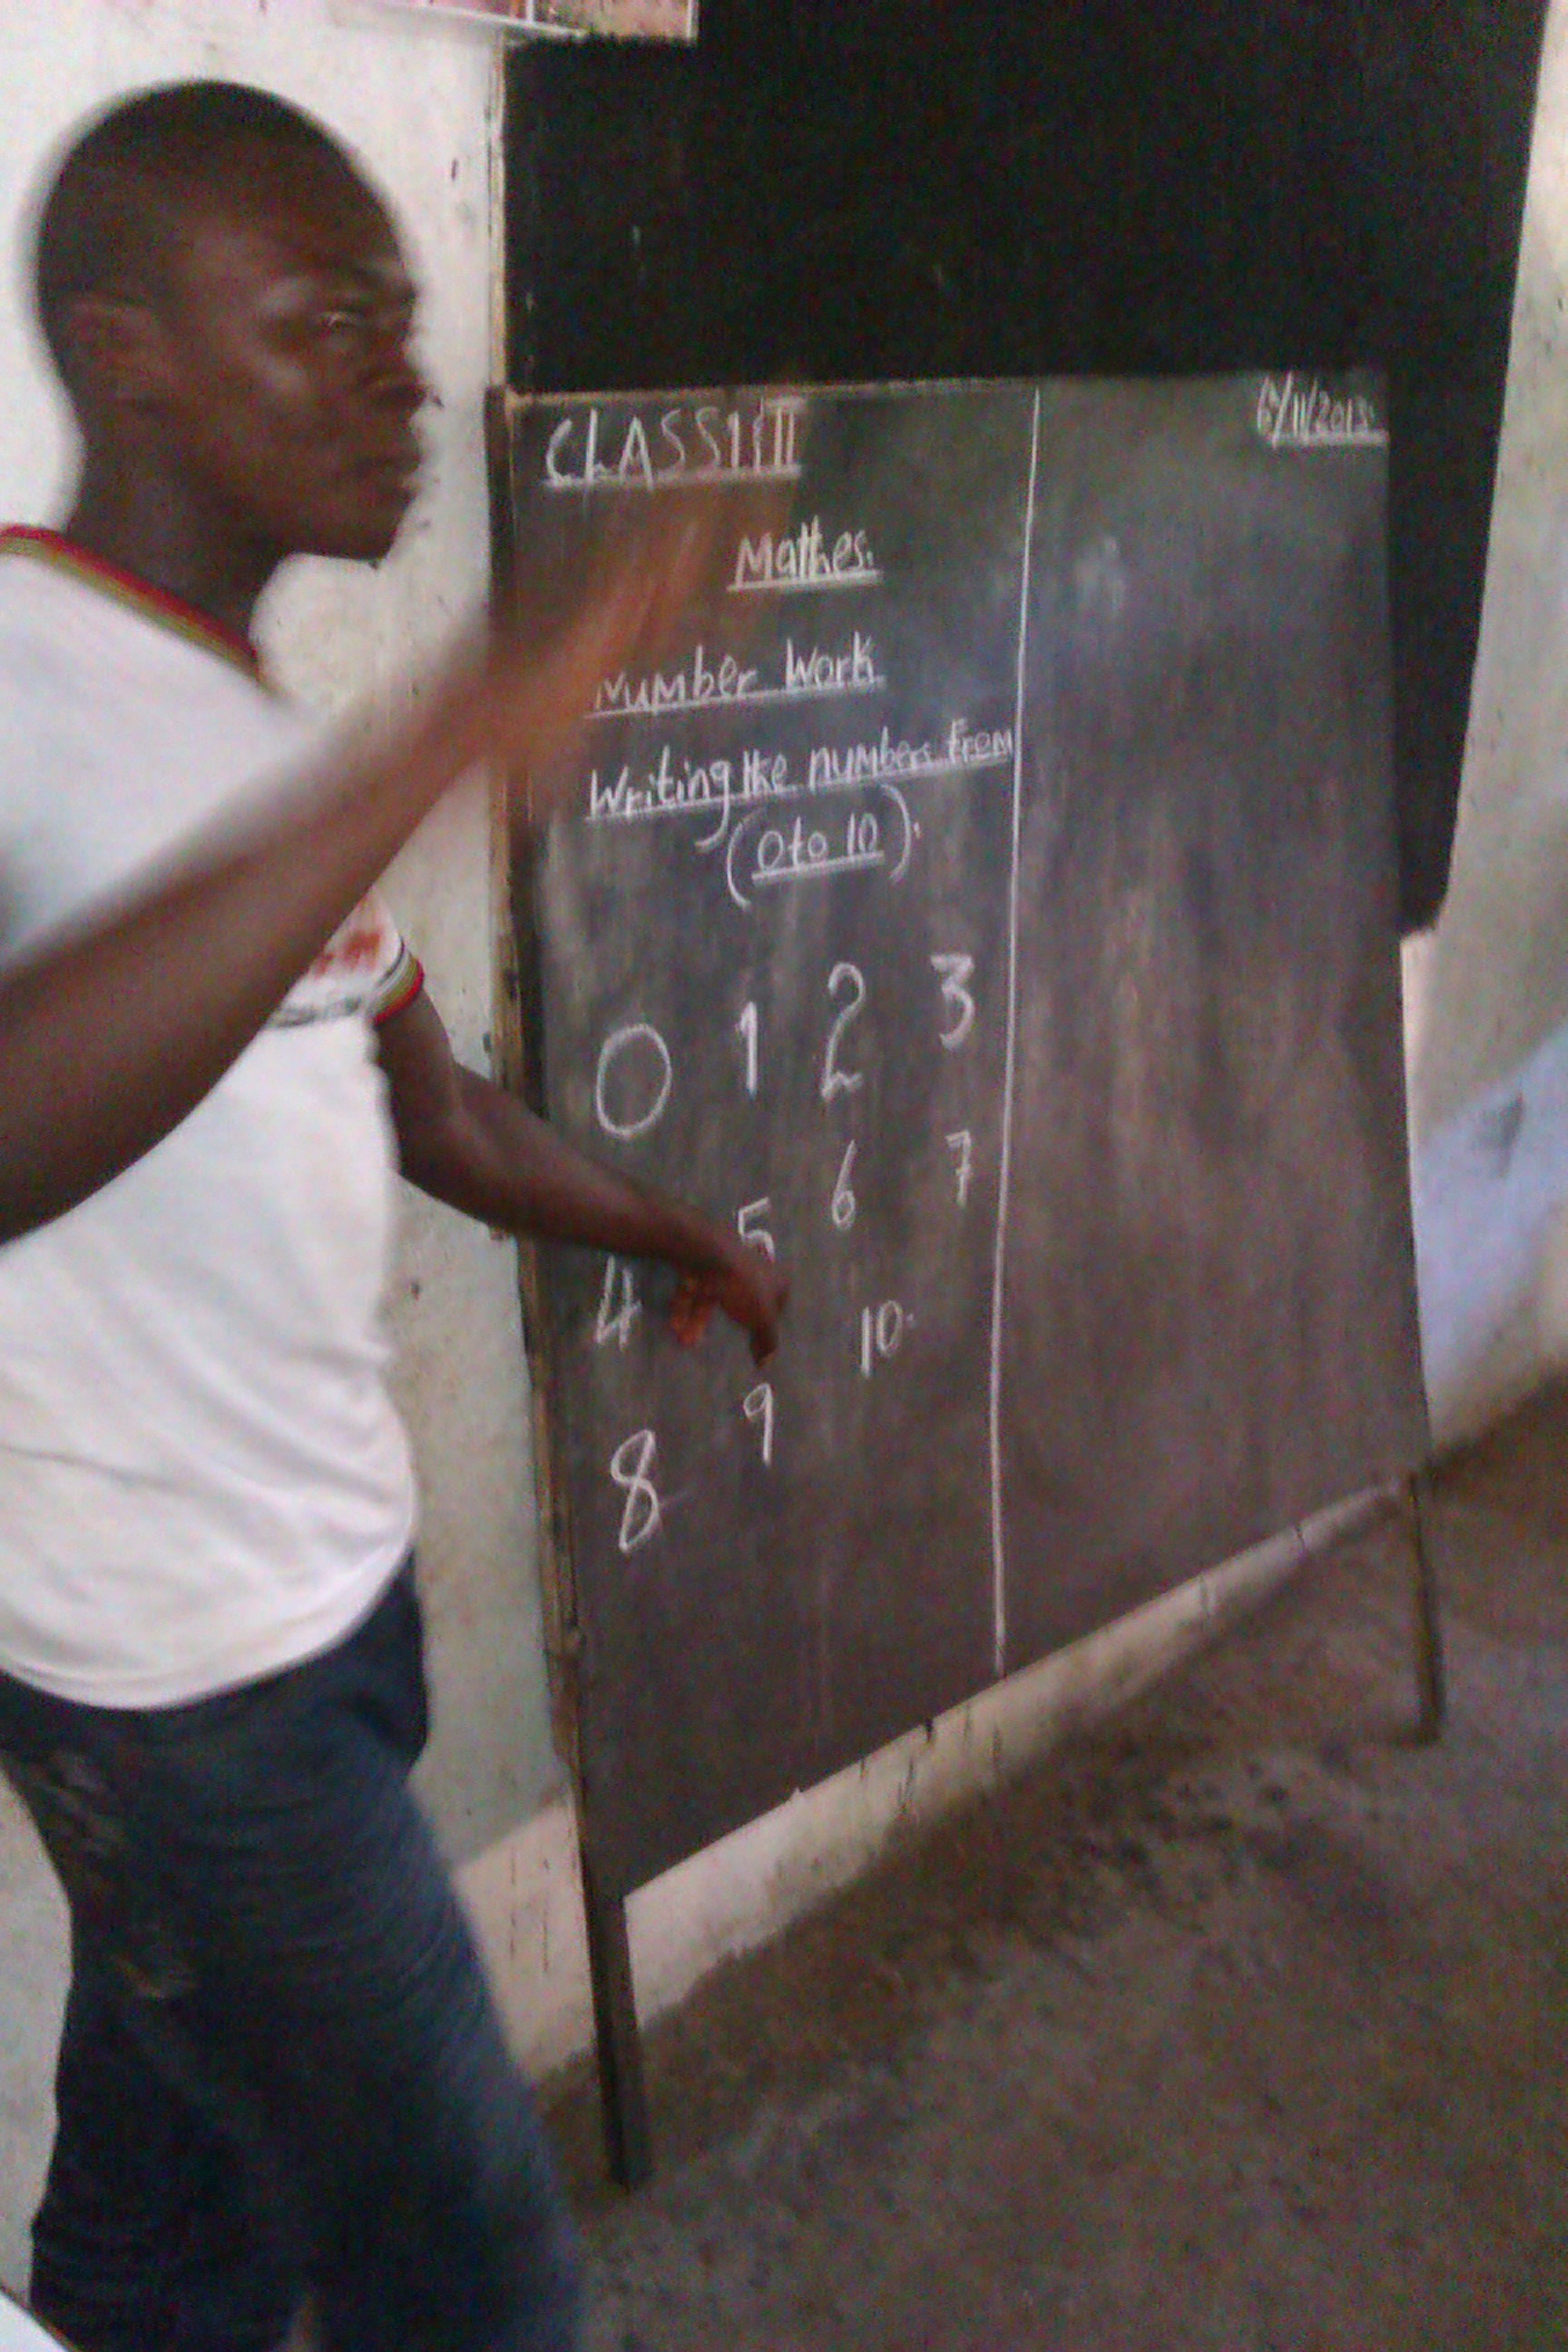 CLASS I & II
6/11/2013.
Mathes.
Number Work
Writing the numbers From
(0 to 10).
0 1 2 3
4 5 6 7
8 9 10.